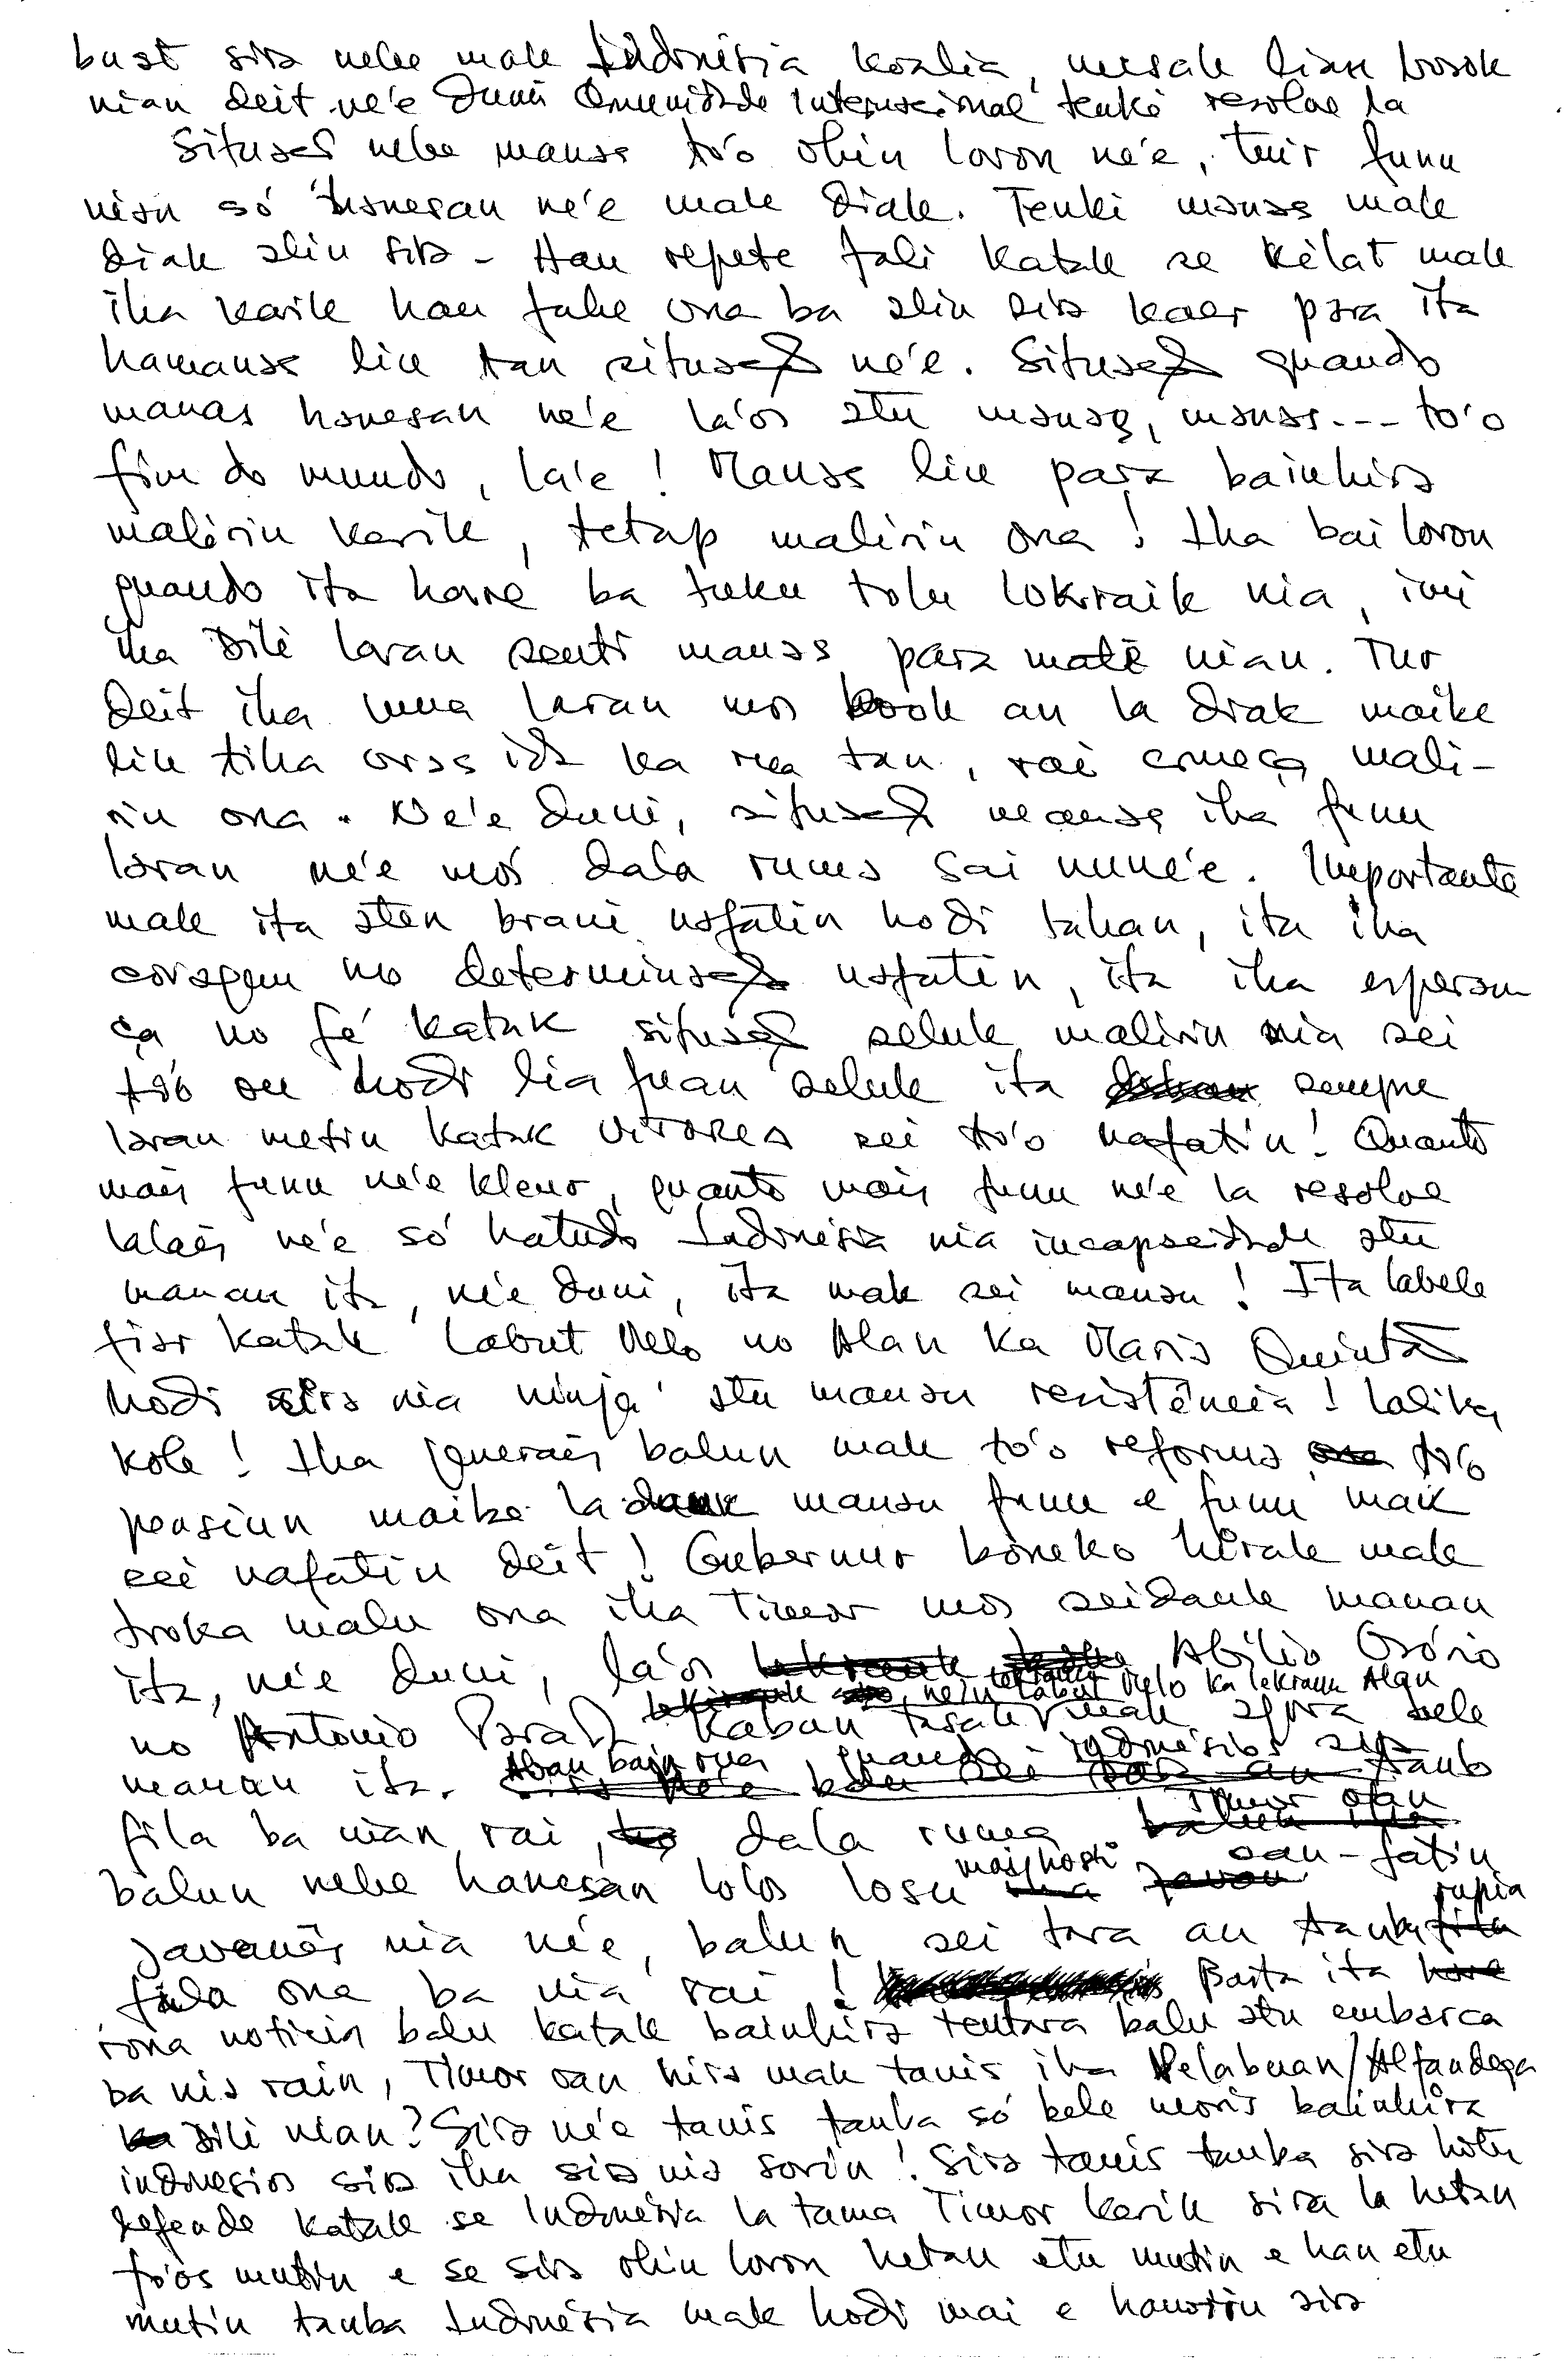 buat sira nebe mak Indonésia koalia, mesak lian bosok
nian deit ne'e duni Comunidade Internacional tenké resolve la
Situasaõ nebe manas to'o ohin loron ne'e, tuir funu
nian só hanesan ne'e mak diak. Tenki manas mak
diak alin sira - Hau repete fali katak se kilat mak
iha karik hau fahe ona ba alin sira kaer para ita
hamanas liu tan situaçaõ ne'e. Situaçaõ quando
manas hanesan ne'e la'os atu manas, manas --- to'o
fim do mundo, la'e ! Manas liu para bainhira
malirin karik, tetap malirin ona ! Iha bai loron
quando ita haré ba tuku tolu lokraik nia, imi
iha Dili laran senti manas para maté nian. Tur
deit iha uma laran mos book an la diak maibe
liu tiha oras ida ka rua tan, rai começa mali-
rin ona. Ne'e duni, situaçaõ manas iha funu
laran ne'e mos dala ruma sai nune'e. Importante
mak ita aten brani nafatin hodi tahan, ita iha
coragem no determinaçaõ nafatin, ita iha esperan
ça no fé katak situaçaõ seluk malirin nia sei
to'o ou hodi lia fuan seluk ita sempre
laran metin katak VITÓRIA sei to'o nafatin! Quanto
mais funu ne'e kleur, quanto mais funu ne'e la resolve
lalais ne'e só hatudo Indonésia nia incapacidade atu
manan ita, ne'e duni, ita mak sei manan ! Ita labele
fiar katak Labut Melo no Alan ka Mario Quintaõ
hodi sira nia ninja atu manan resistência ! Lalika
kole ! Iha generais balun mak to'o reforma to'o
pensiun maibe ladauk manan funu e funu mak
sei nafatin deit ! Gubernur boneko hirak mak
troka malu ona iha Timor mos seidauk manan
ita, ne'e duni, la'os Abílio Osório
lekirauk Labut Melo ka lekirauk Alan
no Antonio Paradaõ kaban tasak mak agora bele
manan ita. Aban bain rua, quando indonésios sira tanb
fila ba nian rai, dala ruma Timor oan
balun nebe hanesan lolos losu mai hosi oan-fatin
Javanês nia ne'e, balun sei tara an tamba rupia
fila ona ba nia rai ! Basta ita
rona noticia balu katak bainhira tentara balu atu embarca
ba nia rain, Timor oan hira mak tanis iha Pelabuan/Alfandega
Dili nian? Sira ne'e tanis tamba só bele moris bainhira
indonesios sira iha sira nia sorin ! Sira tanis tamba sira hotu
defende katak se Indonésia la tama Timor karik sira la hetan
fo'os mutin e se sira ohin loron hetan etu mutin e han etu
mutin tamba Indonésia mak hodi mai e hanorin sira